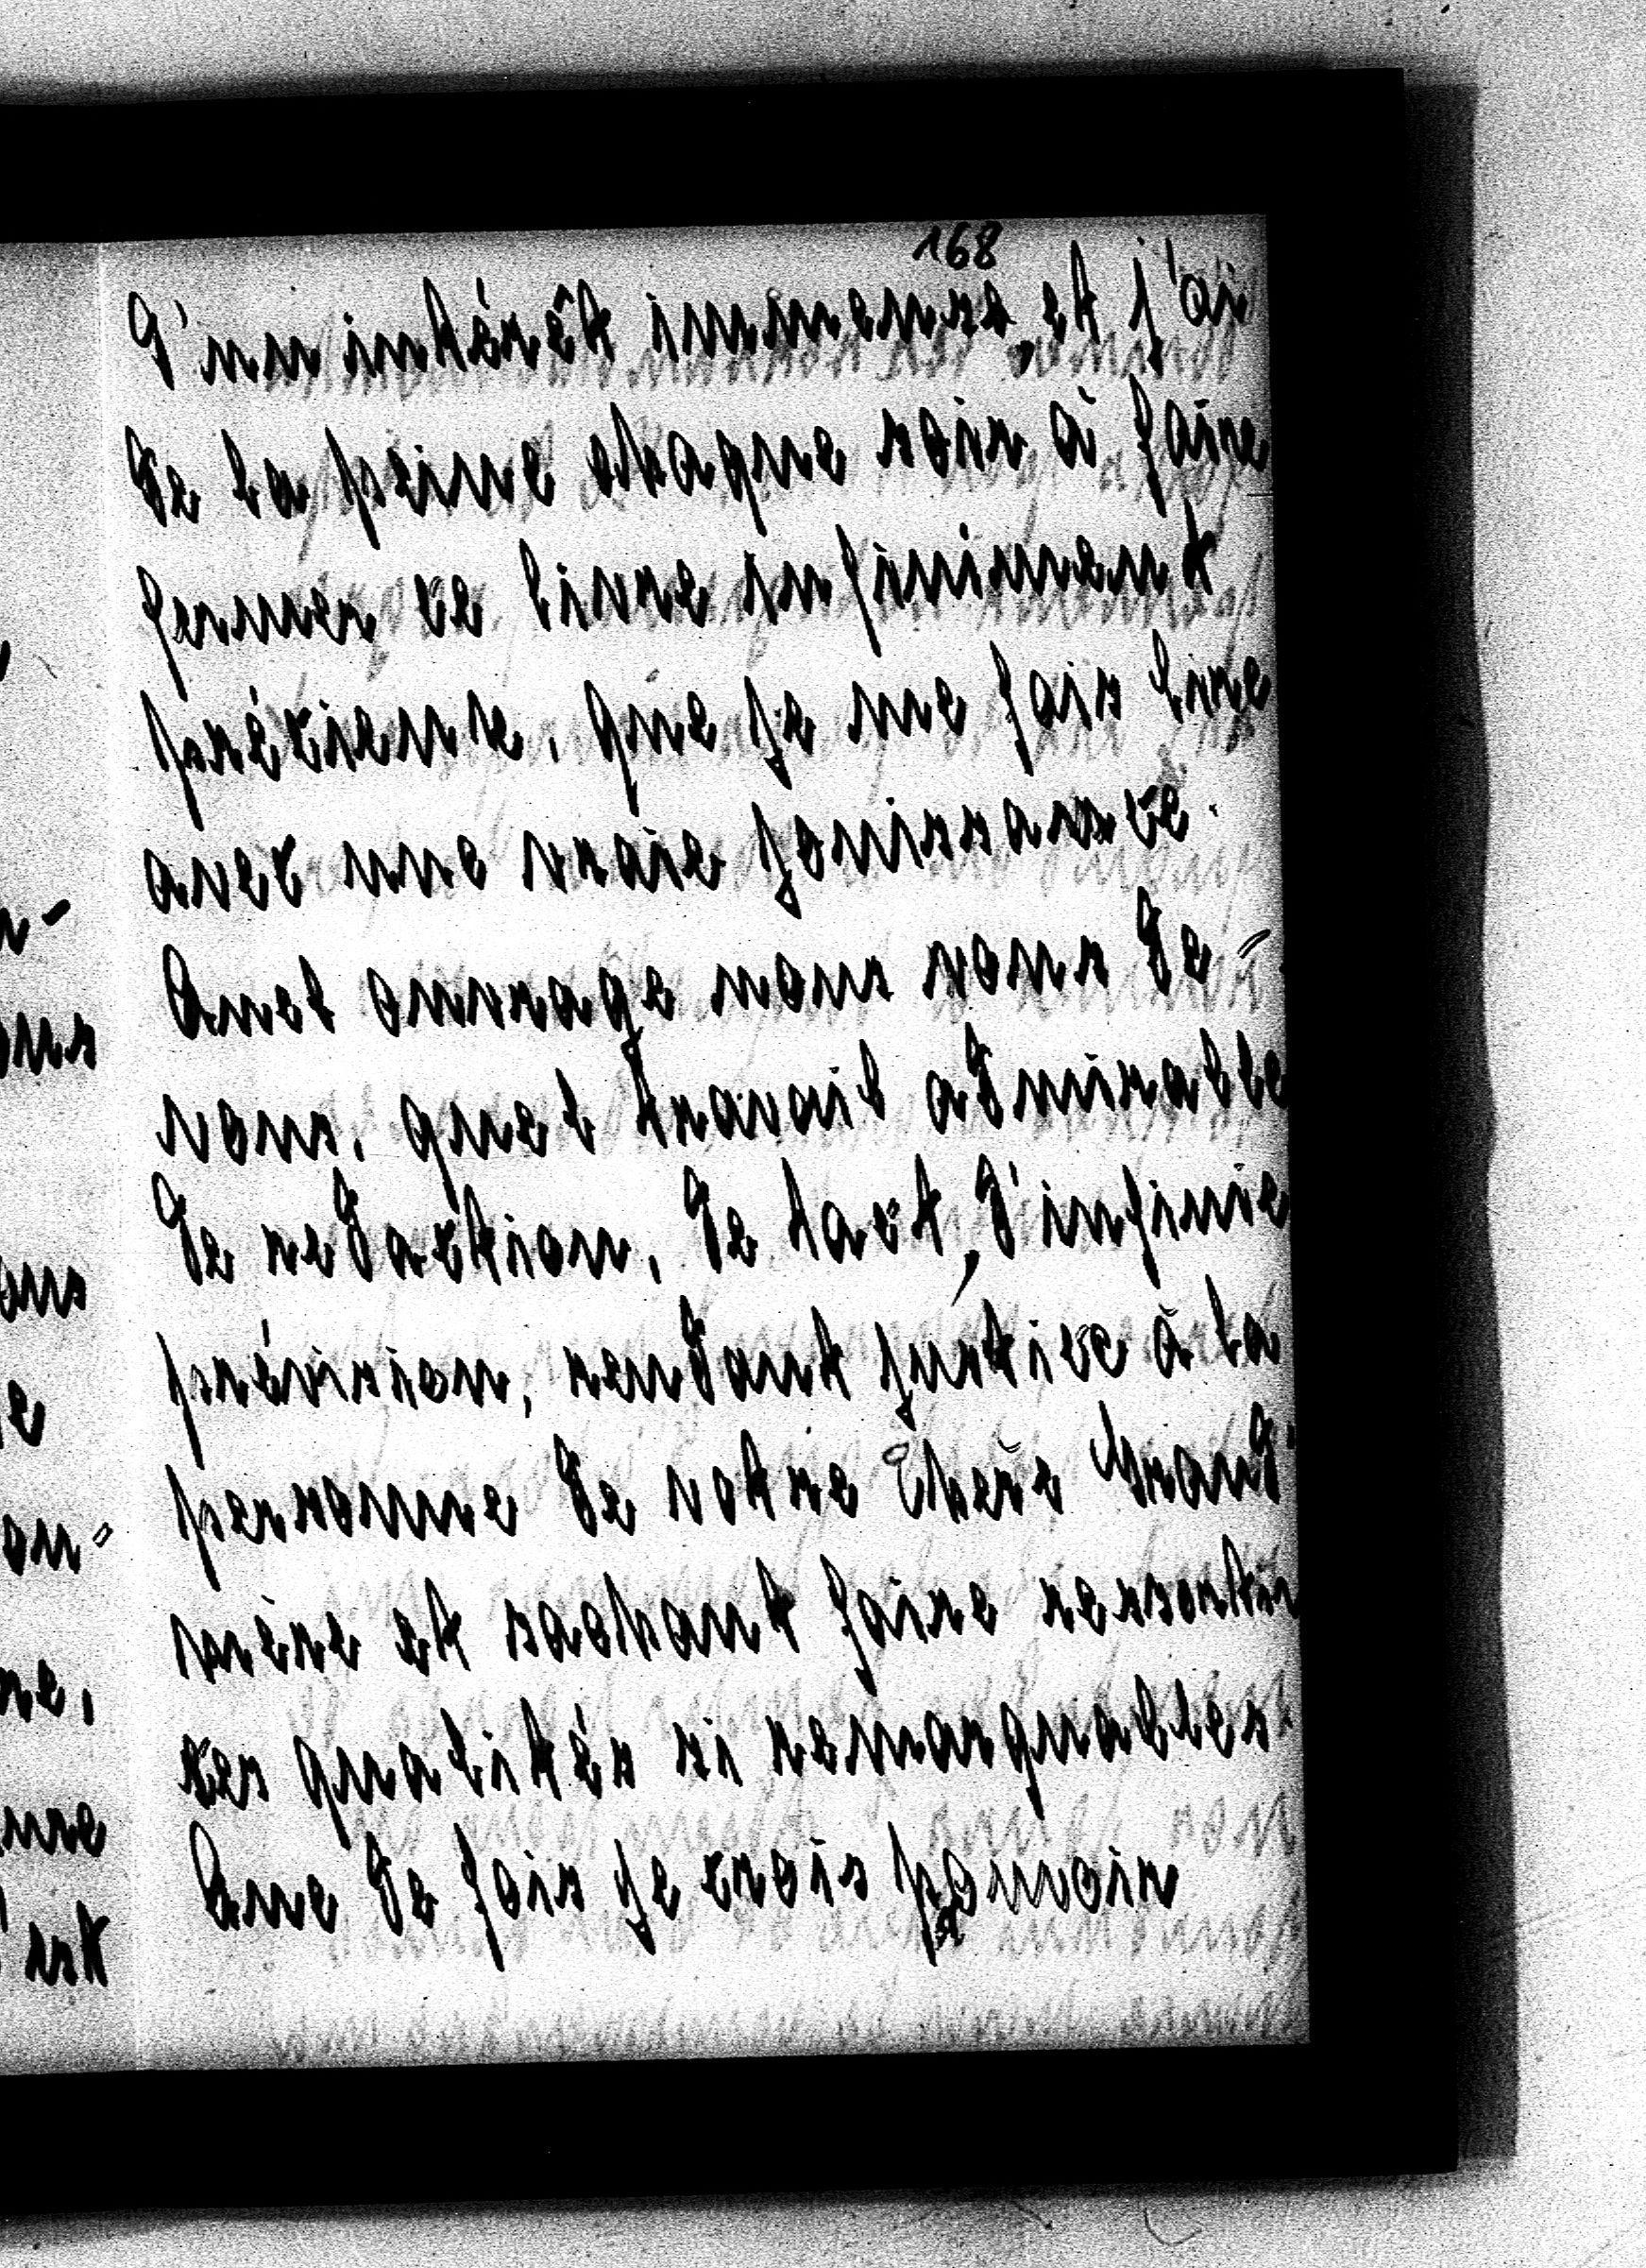 168
d'un intérêt immense, et j'ai
de la peine chaque soir à faire
fermer ce livre infiniment
précieux, que je me fais lire
avec une vraie jouissance.
Quel ouvrage nous vous de-
vons, quel travail admirable
de redaction, de tact, d'infinie
prévision, rendant justice à la
personne de votre chère Grand'
mère et sachant faire ressortir
ses qualités si remarquables.
Que de fois je crois pouvoir